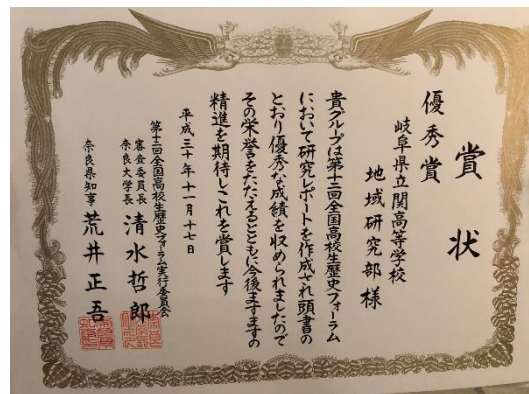 賞状
優秀賞
岐阜県立関高等学校
地域研究部様
貴グループは第十二回全国高校生歴史フォーラム
において研究レポートを作成され頭書の
とおり優秀な成績を収められましたので
その栄誉をたたえるとともに今後ますますの
精進を期待しこれを賞します
平成三十年十一月十七日
第十二回全国高校生歴史フォーラム実行委員会
審査委員長
奈良大学長 清水哲郎
奈良県知事 荒井正吾